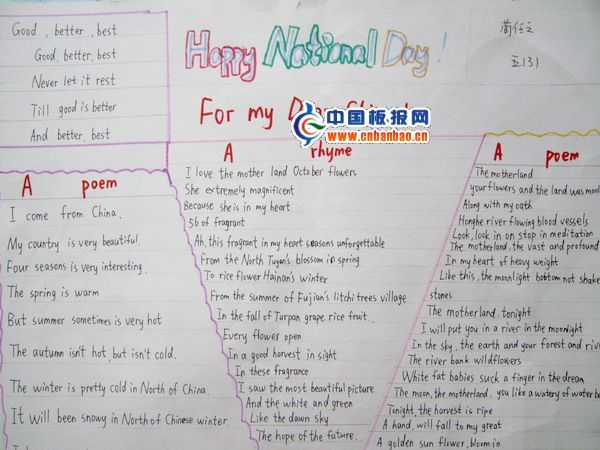 Good, better, best
Good, better, best
Never let it rest
Till good is better
And better, best
Happy National Day!
For my
中国板报网
www.cnbanbao.cn
五131
A poem
I come from China.
My country is very beautiful.
Four seasons is very interesting.
The spring is warm
But summer sometimes is very hot
The autumn isn't hot, but isn't cold.
The winter is pretty cold in North of China.
It will been snowy in North of Chinese winter.
A rhyme
I love the mother land October flowers
She extremely magnificent
Because she is in my heart
56 of fragrant
Ah, this fragrant in my heart seasons unforgettable
From the North Tugan's blossom in spring
To rice flower Hainan's winter
From the summer of Fujian's litchi trees village
In the fall of Turpan grape rice fruit.
Every flower open
In a good harvest in sight
In these fragrance
I saw the most beautiful picture
And the white and green
Like the dawn sky
The hope of the future.
A poem
The motherland
your flowers and the land was moon
Along with my oath
Honghe river flowing blood vessels
Look, look in on stop in meditation
The motherland, the vast and profound
In my heart of heavy weight
Like this, the moonlight bottom not shake
stones
The motherland, tonight
I will put you in a river in the moonlight
In the sky, the earth and your forest and river
The river bank wildflowers
White fat babies suck a finger in the dream
The moon, the motherland, you like a watery of water
Tonight, the harvest is ripe
A hand, will fall to my great
A golden sun flower, bloom in